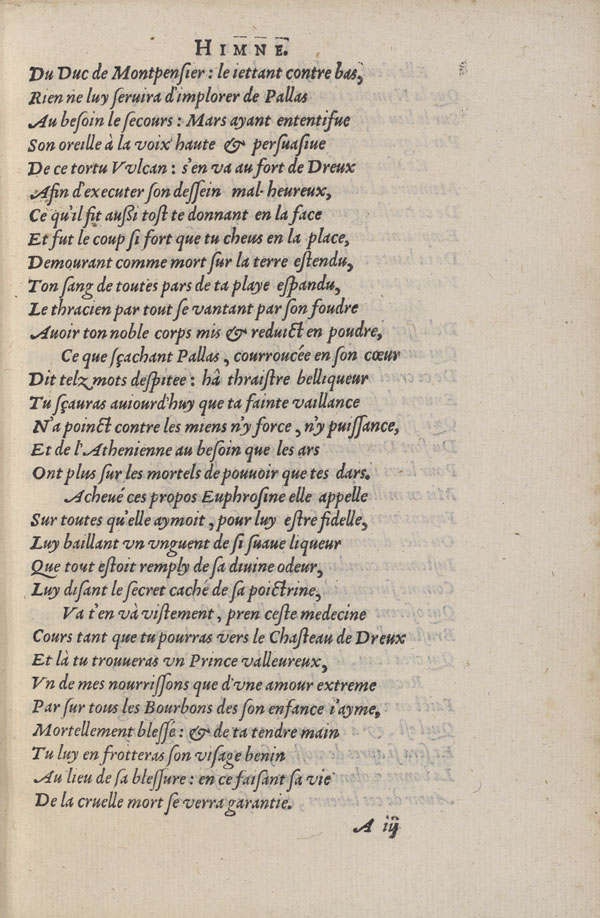 HIMNE.
Du Duc de Montpenſier : le iettant contre bas,
Rien ne luy ſeruira d'implorer de Pallas
Au beſoin le ſecours : Mars ayant ententifue
Son oreille à la voix haute & perſuaſiue
De ce tortu Vvlcan : s'en va au fort de Dreux
Afin d'executer ſon deſſein mal-heureux,
Ce qu'il fit außi toſt te donnant en la face
Et fut le coup ſi fort que tu cheus en la place,
Demourant comme mort ſur la terre eſtendu,
Ton ſang de toutes pars de ta playe eſpandu,
Le thracien par tout ſe vantant par ſon foudre
Auoir ton noble corps mis & reduict en poudre,
Ce que ſçachant Pallas, courroucée en ſon cœur
Dit telz mots deſpitee : hâ thraiſtre belliqueur
Tu ſçauras auiourd'huy que ta fainte vaillance
N'a poinct contre les miens n'y force, n'y puiſſance,
Et de l'Athenienne au beſoin que les ars
Ont plus ſur les mortels de pouuoir que tes dars.
Acheué ces propos Euphroſine elle appelle
Sur toutes qu'elle aymoit, pour luy eſtre fidelle,
Luy baillant vn vnguent de ſi ſuaue liqueur
Que tout eſtoit remply de ſa diuine odeur,
Luy diſant le ſecret caché de ſa poictrine,
Va t'en và viſtement, pren ceſte medecine
Cours tant que tu pourras vers le Chaſteau de Dreux
Et là tu trouueras vn Prince valleureux,
Vn de mes nourriſſons que d'vne amour extreme
Par ſur tous les Bourbons des ſon enfance i'ayme,
Mortellement bleſſé : & de ta tendre main
Tu luy en frotteras ſon viſage benin
Au lieu de ſa bleſſure : en ce faiſant ſa vie
De la cruelle mort ſe verra garantie.
A iij